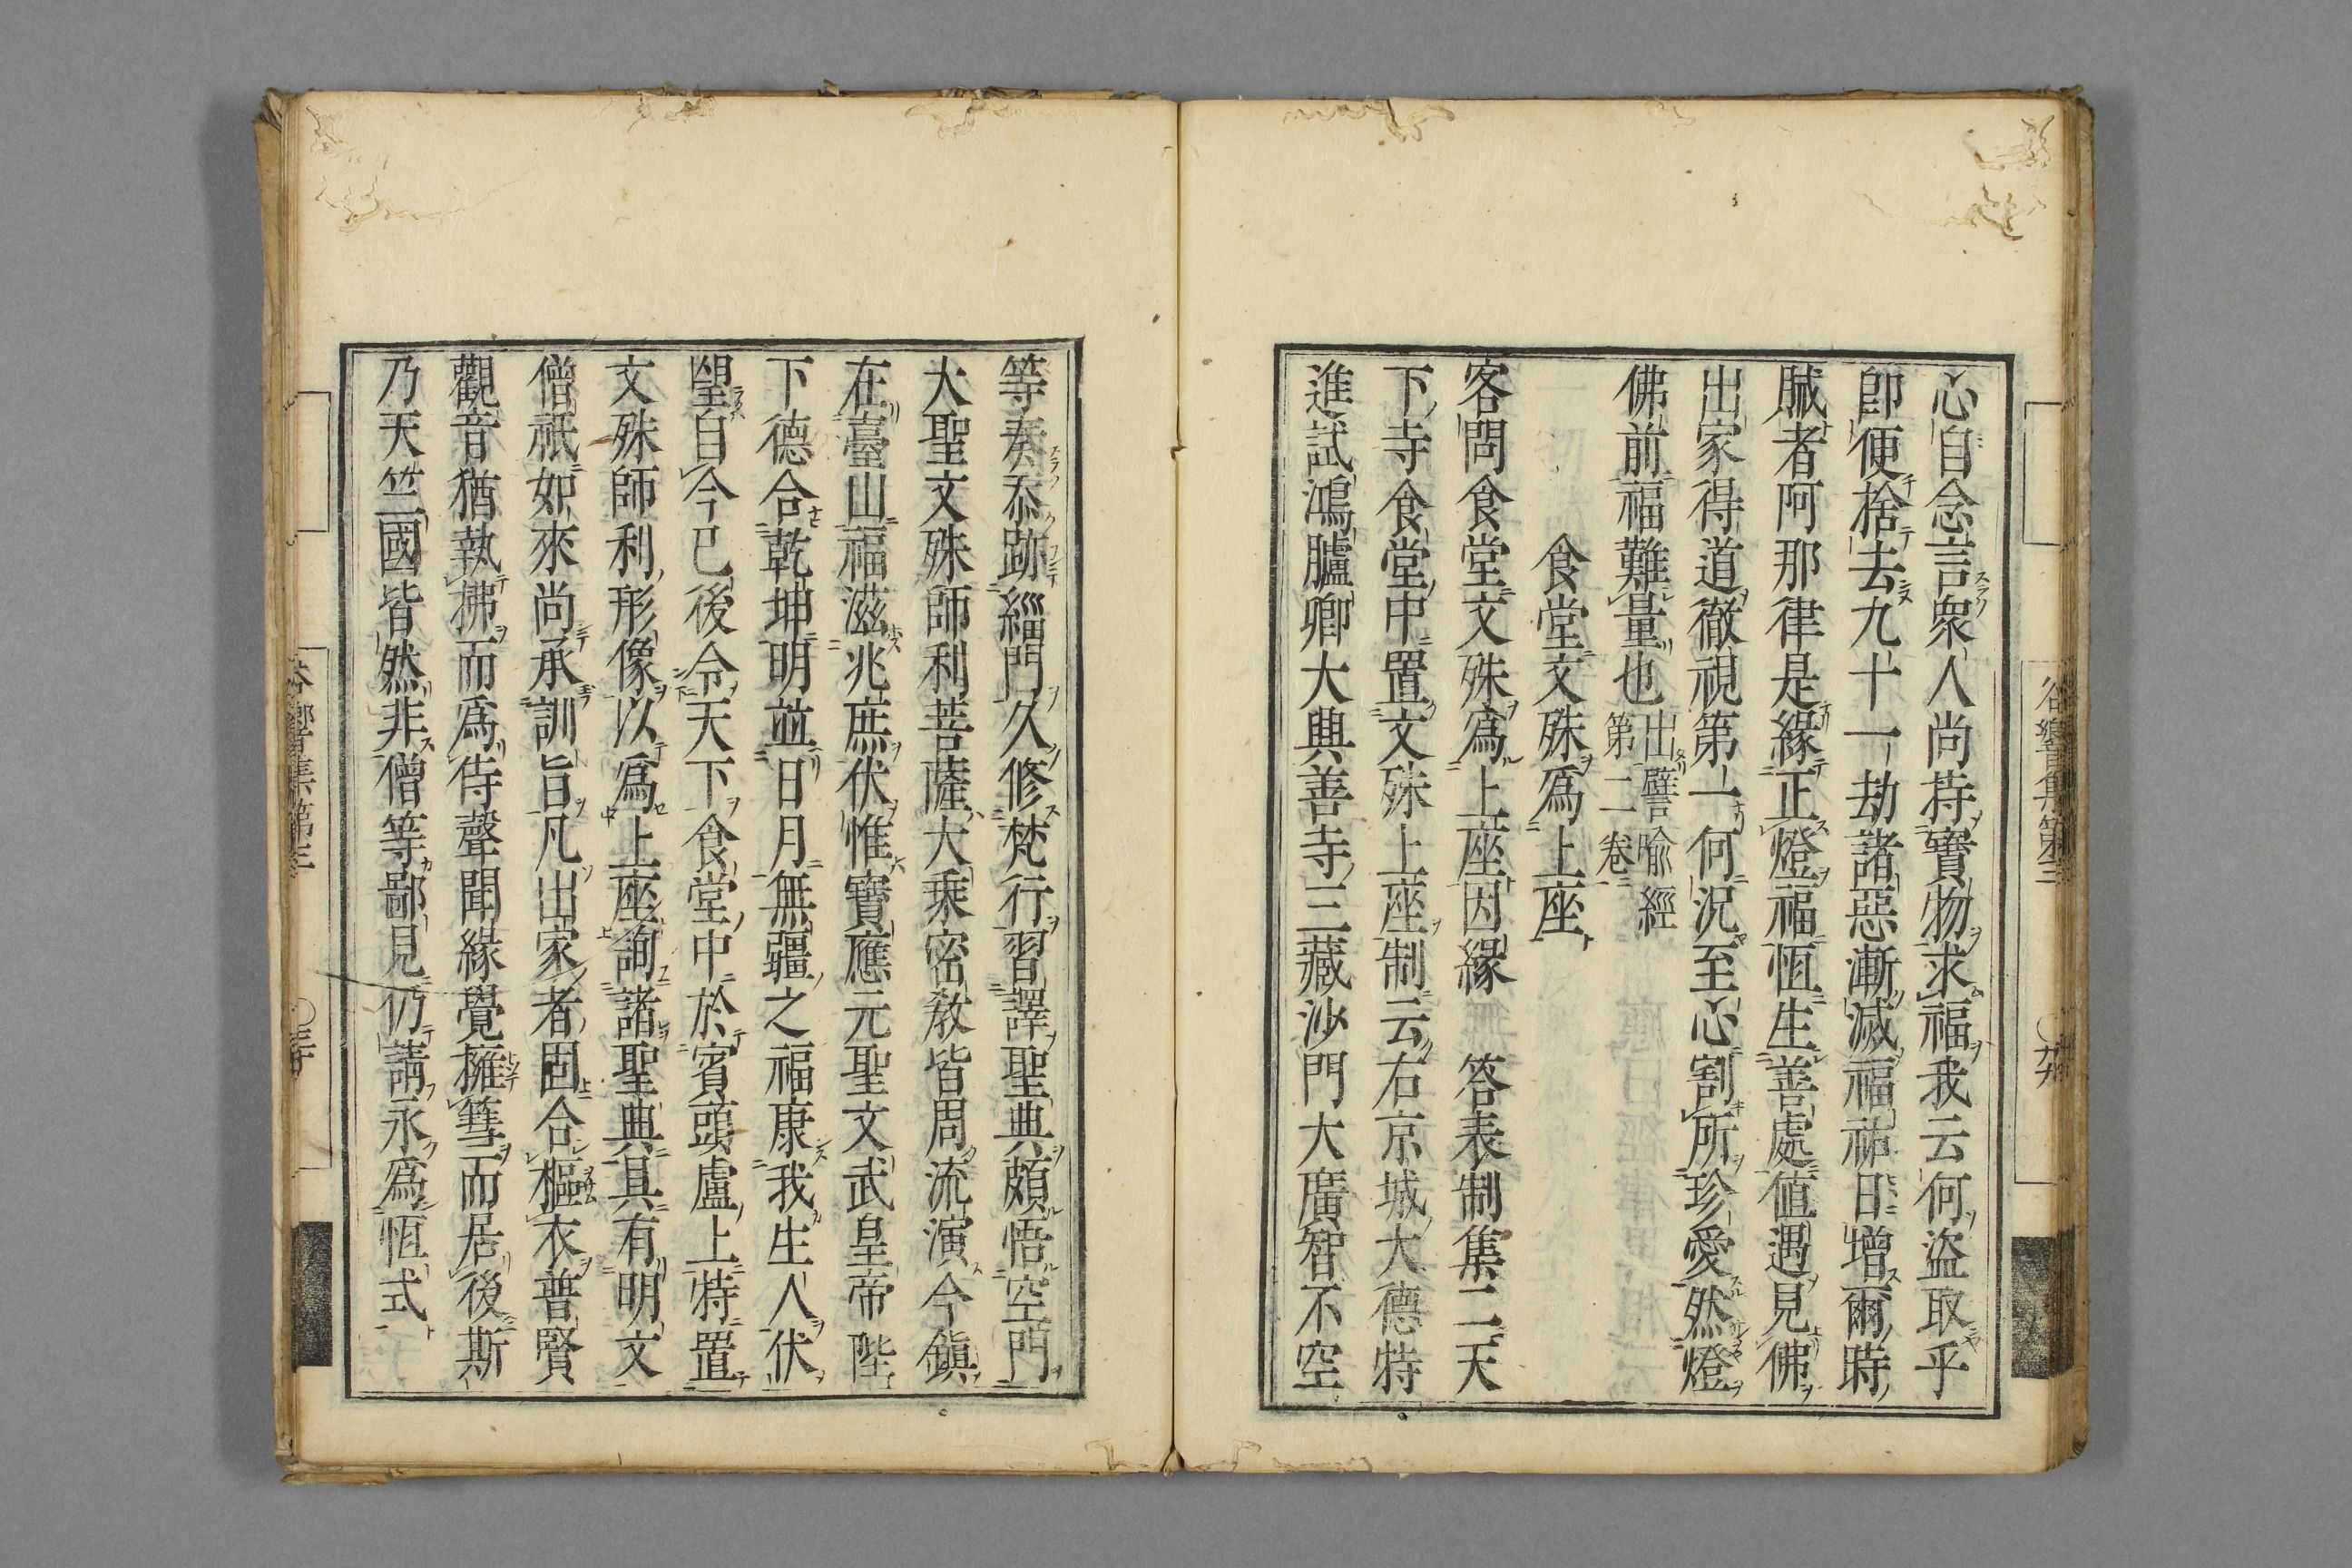 谷響集第三　〇廿九
心自念言衆人尚持寶物求福我云何盗取乎
卽便捨去九十一劫諸惡漸滅福祐日增爾時
賊者阿那律是緣正燈福恆生善處値遇見佛
出家得道徹視第一何況至心割所珍愛然燈
佛前福難量也出譬喩經
第二卷
食堂文殊爲上座
客問食堂文殊爲上座因緣　答表制集二天
下寺食堂中置文殊上座制云右京城大德特
進試鴻臚卿大興善寺三藏沙門大廣智不空
等奏忝跡緇門久修梵行習譯聖典頗悟空門
大聖文殊師利菩薩大乘密敎皆周流演今鎭
在臺山福滋兆庶伏惟寶應元聖文武皇帝陛
下德合乾坤明並日月無疆之福康我生人伏
望自今已後令天下食堂中於賓頭盧上特置
文殊師利形像以爲上座詢諸聖典具有明文
僧祇如來尚承訓旨凡出家者固合樞衣普賢
觀音猶執拂而爲侍聲聞緣覺擁篲而居後斯
乃天竺國皆然非僧等鄙見仍請永爲恆式
谷響集第三　〇三十